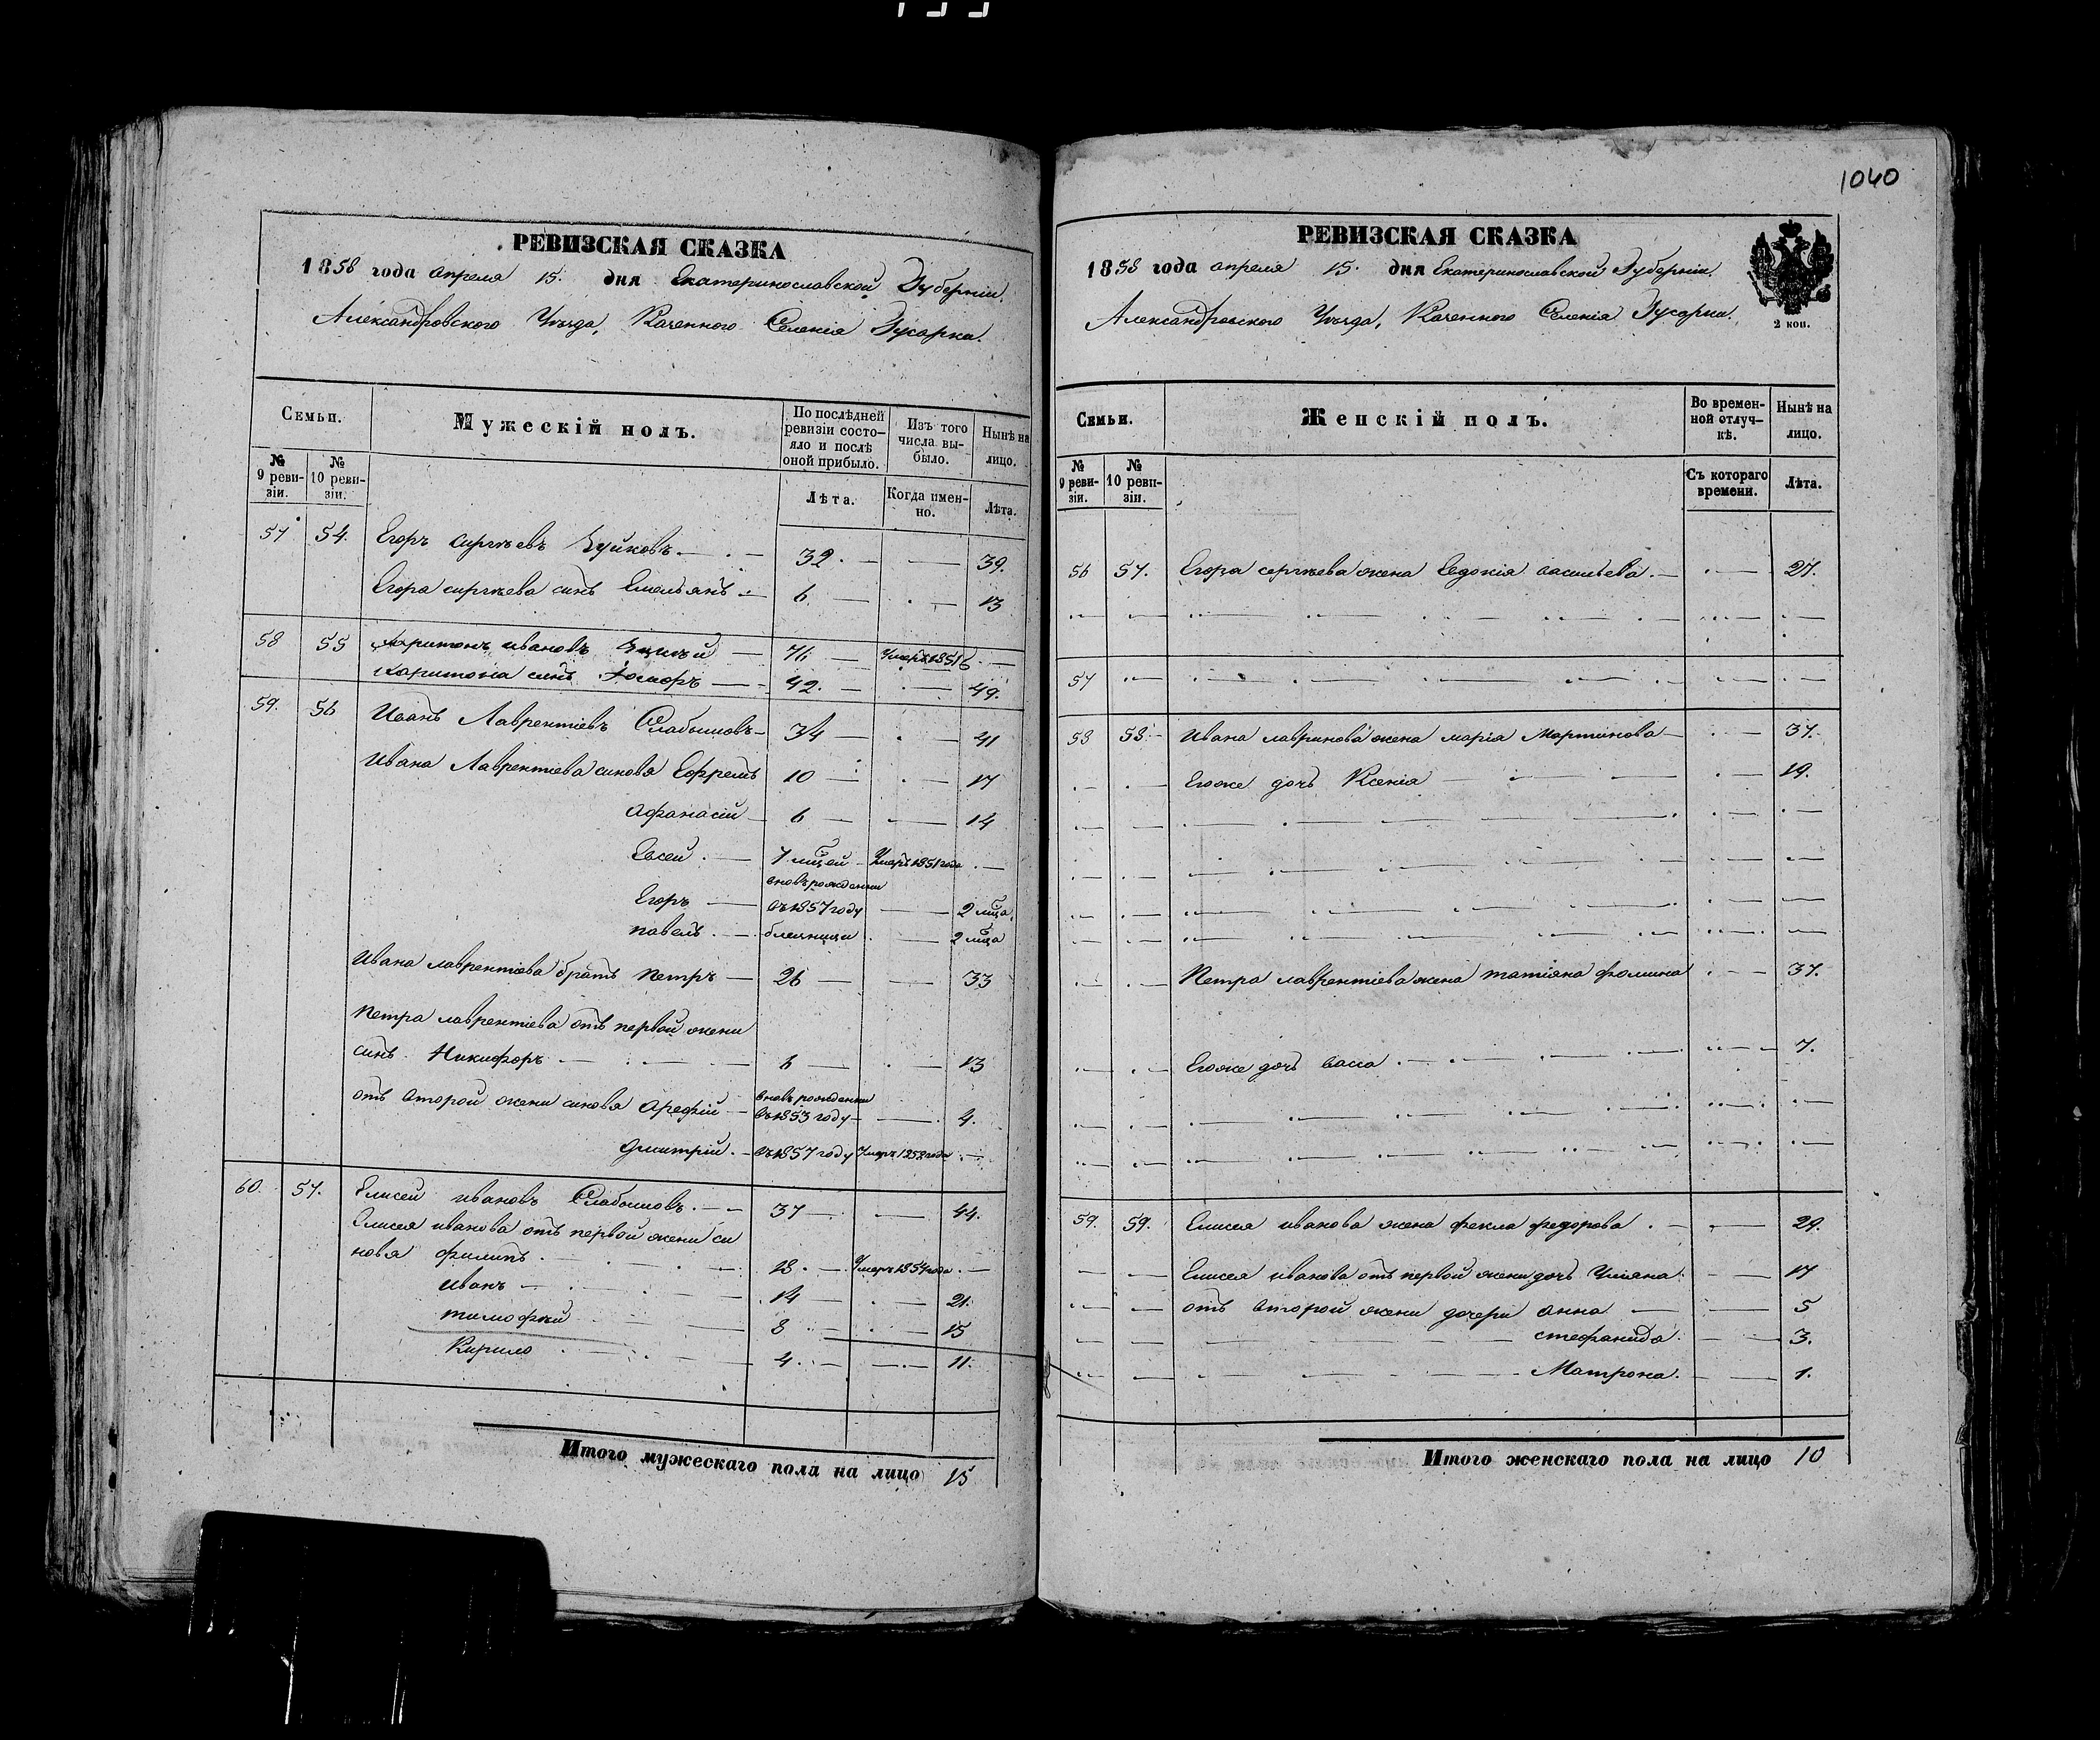 1040
РЕВИЗСКАЯ СКАЗКА
1858 года апреля 15. дня Екатеринославской Губерніи,
Александровского Уѣзда, Казенного Селенія Гусарка.
Семьи.
Мужескій полъ.
По послѣдней ревизіи состояло и послѣ оной прибыло.
Изъ того числа выбыло.
Нынѣ на лицо.
№ 9 ревизіи.
№ 10 ревизіи.
Лѣта.
Когда имен-но.
Лѣта.
57 54. Егоръ сиргѣевъ Зуйковъ. 32. 39.
Егора сиргѣева синъ Емельянъ 6. 13
58 55 Харитонъ ивановъ 76 Умеръ 1856
Харитона синъ 42. 49.
59. 56 Иванъ Лаврентіевъ Слабышовъ 34 41
Ивана Лаврентіева синовя Ефремъ 10 17
Афанасій 6 14
Евсей. 7 мцей Умеръ 1851 года
вновь рожденни
Егоръ въ 1857 году 2 мца.
павелъ. близници 2 мца
Ивана лаврентіева братъ петръ 26 33
петра лаврентіева отъ первой жени
синъ Никифоръ 6 13
вновь рожденни
отъ второй жени синовя Арефій въ 1853 году 4.
Дмитрій. въ 1857 году Умеръ 1858 года
60. 57. Елисей ивановъ Слабышовъ. 37 44.
Елисея иванова отъ первой жени си
новя филипъ. 18. Умеръ 1854 года
иванъ 14 21.
тимофѣй 8 15
Кирило 4. 11.
Итого мужескаго пола на лицо 15
РЕВИЗСКАЯ СКАЗКА
1858 года апреля 15. дня Екатеринославской Губерніи,
Александровского Уѣзда, Казенного Селенія Гусарка.
2 коп.
Семьи.
Женскій полъ.
Во времен-ной отлуч-кѣ.
Нынѣ на лицо.
№ 9 ревизіи.
№ 10 ревизіи.
Съ котораго времени.
Лѣта.
56 57. Егора сергѣева жена Евдокія васильева. 27.
57
58 58. Ивана лавринова жена марія Мартинова 37.
Егоже дочь Ксенія 19.
Петра лаврентіева жена татіяна фомина 37.
Егоже дочь васса 7.
59. 59. Елисея иванова жена фекла федорова. 29.
Елисея иванова отъ первой жени дочь Уліяна. 17
отъ второй жени дочери анна 5
стефанида. 3.
Матрона. 1.
Итого женскаго пола на лицо 10